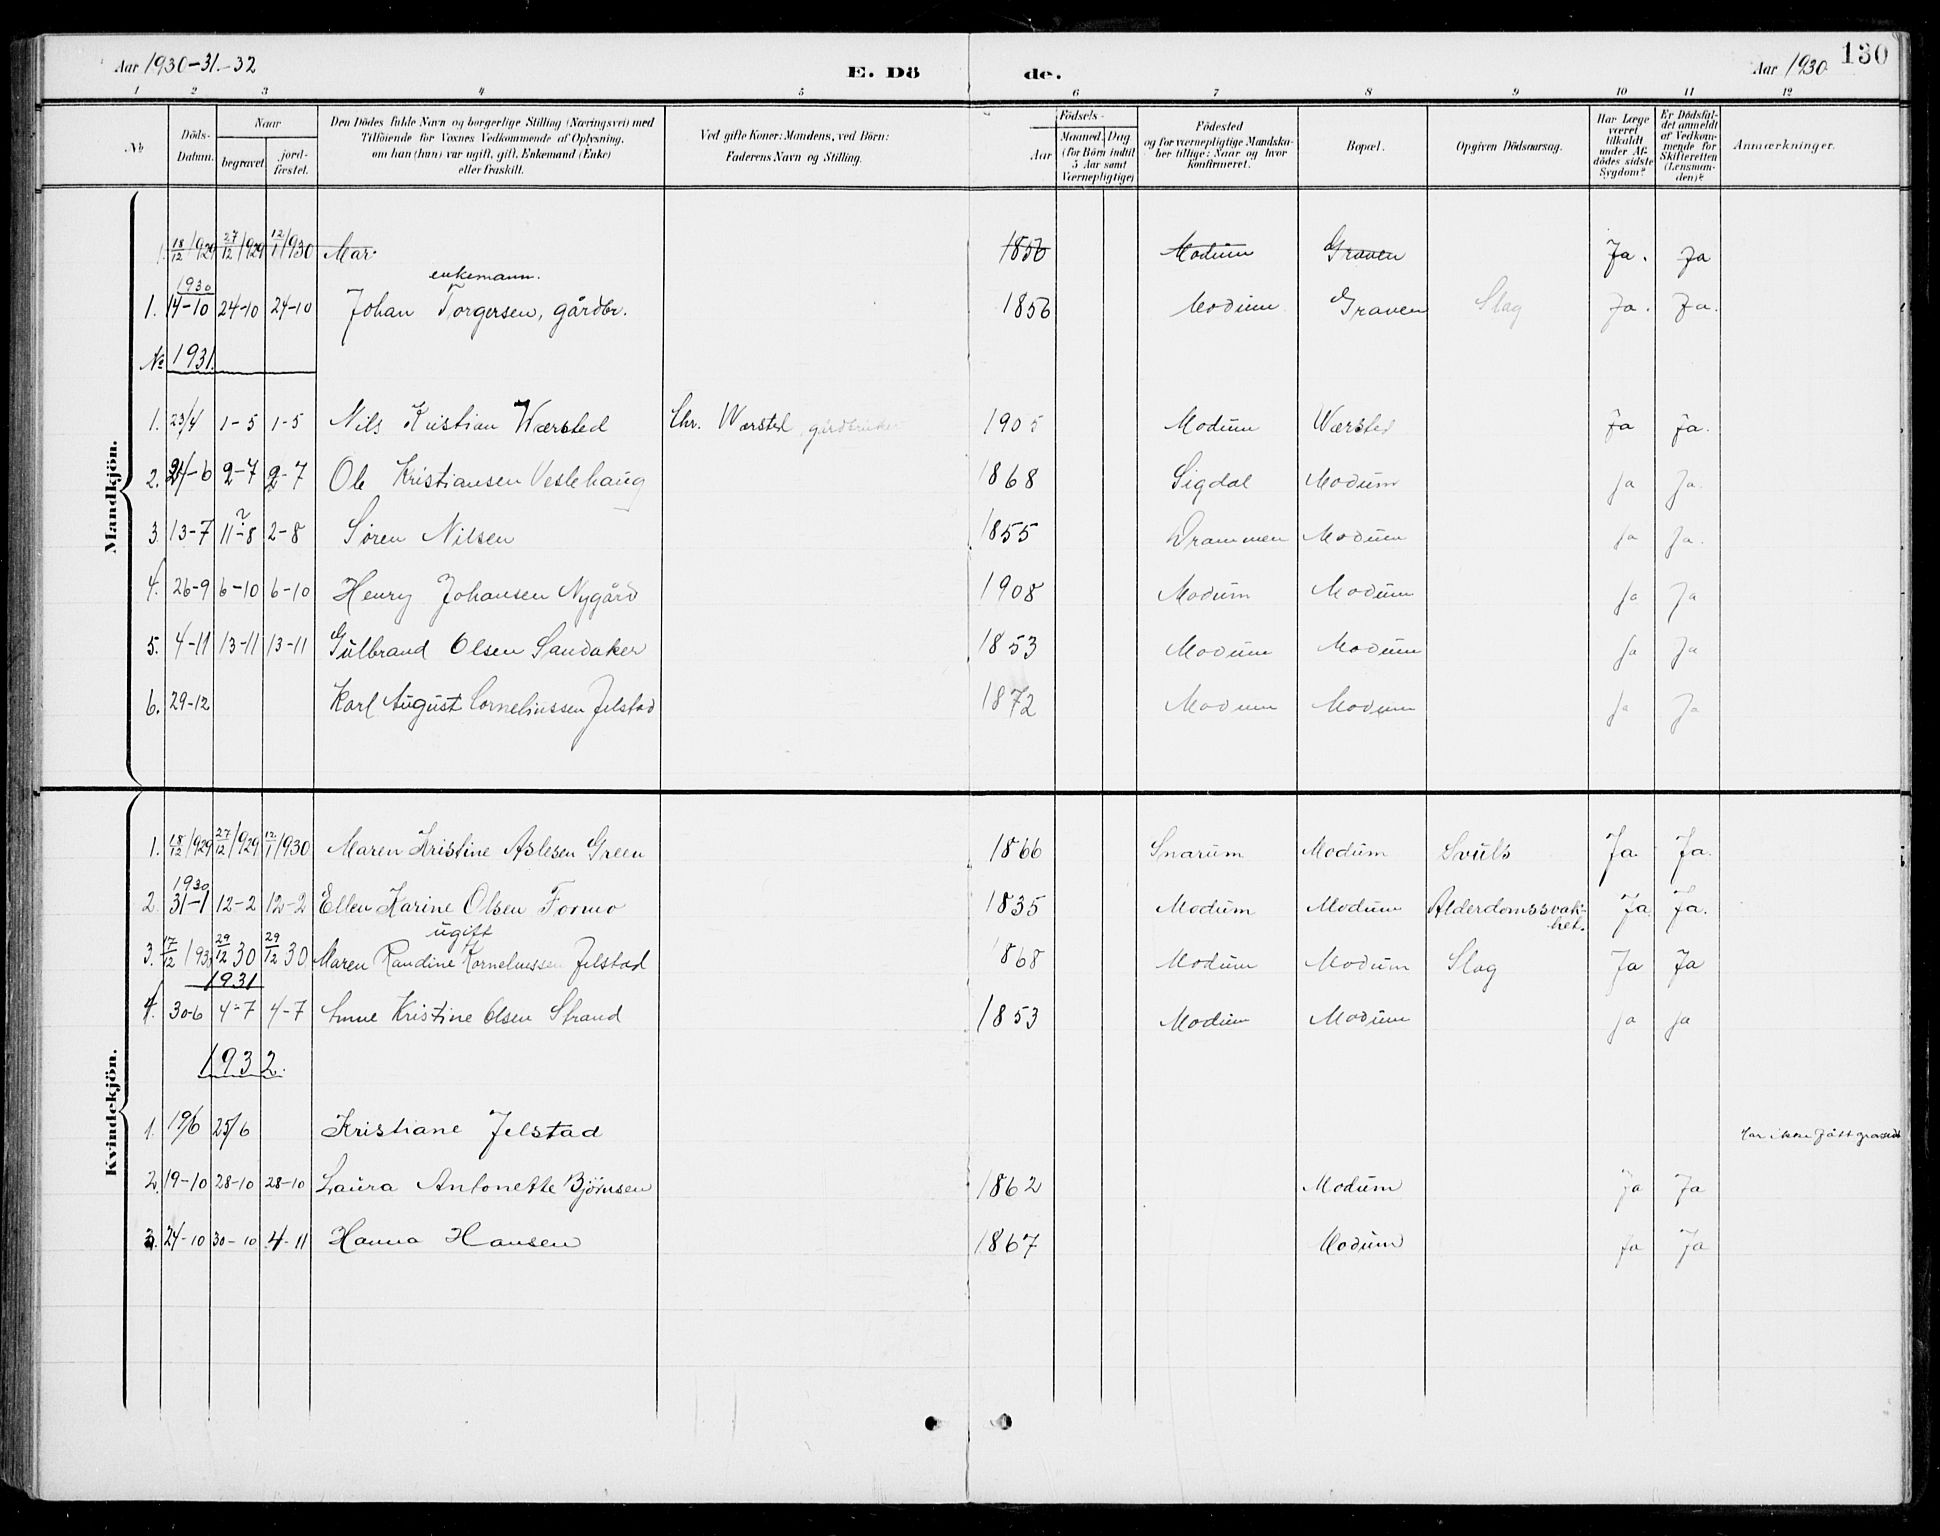 Aar 1930-31-32 E. Dö de. Aar 1930 130
1 2 3 4 5 6 7 8 9 10 11 12
No Döds-Datum. Naar begravet jord-fæstet. Den Dödes fulde Navn og borgerlige Stilling (Næringsvei) med Tilföiende for Voxnes Vedkommende af Oplysning, om han (hun) var ugift, gift, Enkemand (Enke) eller fraskilt. Ved gifte Koner: Mandens, ved Börn: Faderens Navn og Stilling. Födsels- Aar Maaned. Dag (for Börn indtil 5 Aar samt Værnepligtige) Födested og for værnepligtige Mandska-ber tillige: Naar og hvor Konfirmeret. Bopæl. Opgiven Dödsaarsag. Har Læge været tilkaldt under Af-dödes sidste Sygdom? Er Dödsfal-det anmeldt af Vedkom-mende for Skifteretten (Lensman-den)? Anmærkninger.
Mandkjön.
1. 18/12/1929 27/12/1929 12/1/1930 Mar 1856 Modum Graven Ja. Ja
1930 enkemann.
1. 14-10 24-10 24-10 Johan Torgersen, gårdbr. 1856 Modum Graven Slag Ja. Ja.
No 1931.
1. 23/4 1-5 1-5 Nils Kristian Wærsted Chr. Wærsted gårdbruker 1905 Modum Wærsted Ja Ja.
2. 24-6 2-7 2-7 Ole Kristiansen Veslehaug 1868 Sigdal Modum Ja Ja.
3 13-7 11-8 ? 2-8 Søren Nilsen 1855 Drammen Modum Ja Ja.
4. 26-9 6-10 6-10 Henry Johansen Nygård 1908 Modum Modum Ja Ja
5. 4-11 13-11 13-11 Gulbrand Olsen Sandaker 1853 Modum Modum Ja Ja
6. 29-12 Karl August Corneliussen Jelstad 1872 Modum Modum Ja Ja
Kvindekjön.
1. 18/12/1929 27/12/1929 12/1/1930 Maren Kristine Aslesen Green 1866 Snarum Modum Svulst Ja Ja.
1930
2. 31-1 12-2 12-2 Ellen Karine Olsen Formo 1835 Modum Modum Alderdomssvak-het. Ja Ja.
ugift
3. 17/12/1930 29/12 30 29/12 30 Maren Randine Korneliussen Jelstad 1868 Modum Modum Slag Ja Ja
1931
4. 30-6 4-7 4-7 Anne Kristine Olsen Strand 1853 Modum Modum Ja Ja
1932.
1. 19/6 25/6 Kristiane Jelstad Har ikke fått
2. 19-10 28-10 28-10 Laura Antonette Bjørnsen 1862 Modum Ja Ja
3. 24-10 30-10 4-11 Hanna Hansen 1867 Modum Ja Ja